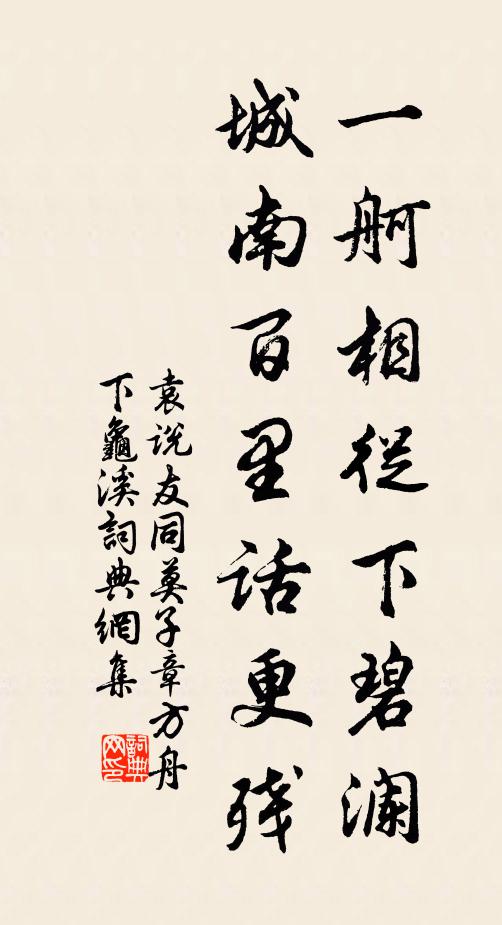 一舸相從下碧瀾
城南百里話更殘
袁説友同莫子章方舟
下龜溪詞典網集
詞典
网印